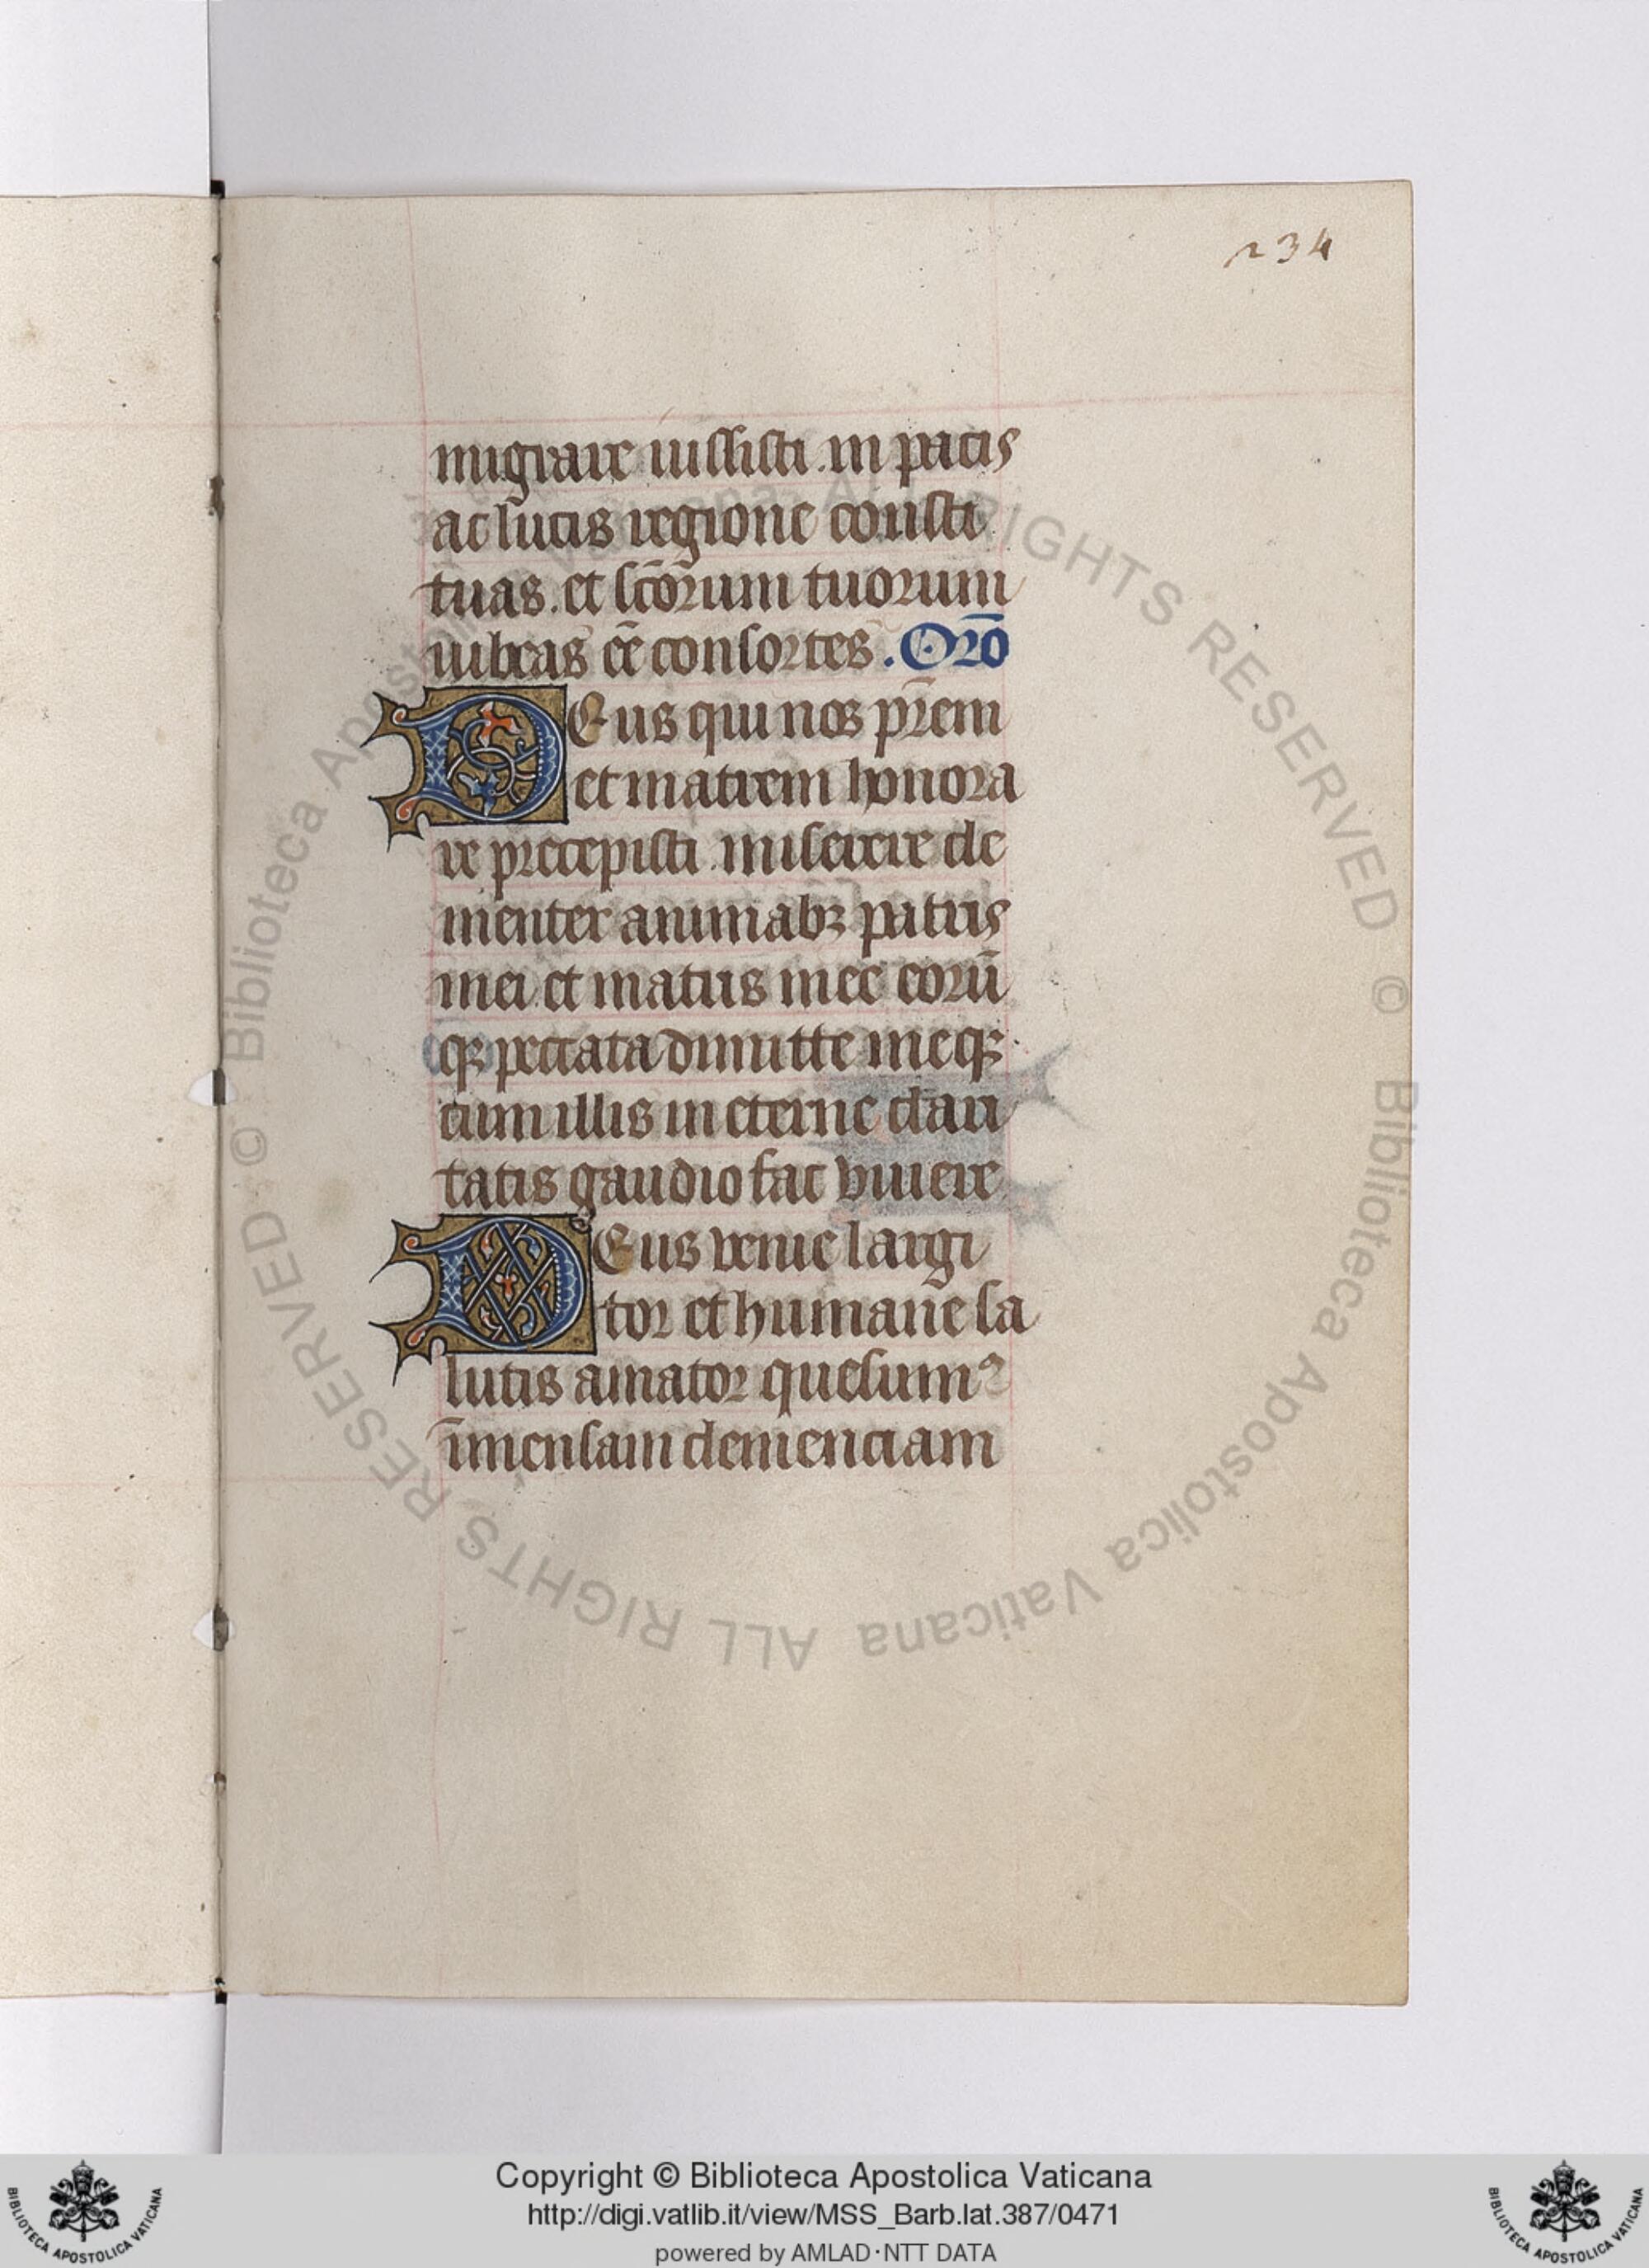 234
migrare iussisti. in pacis
ac lucis regione consti
tuas. et sc̄ōrum tuorum
iubeas eē consortes. Orō
Deus qui nos pr̄em
et matrem honora
re precepisti. miserere cle
menter animabꝫ patris
mei et matris mee eorū
qꝫ peccata dimitte meqꝫ
cum illis in eterne clari
tatis gaudio fac viuere
Deus venie largi
tor et humane sa
lutis amator quesumꝰ
īmensam clemenciam
© Biblioteca Apostolica Vaticana ALL RIGHTS RESERVED © Biblioteca Apostolica Vaticana ALL RIGHTS RESERVED
Copyright © Biblioteca Apostolica Vaticana
http://digi.vatlib.it/view/MSS_Barb.lat.387/0471
powered by AMLAD·NTT DATA
BIBLIOTECA APOSTOLICA VATICANA
BIBLIOTECA APOSTOLICA VATICANA